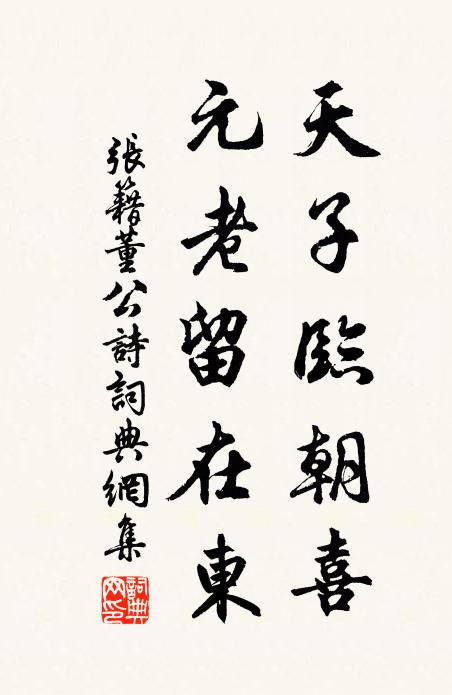 天子臨朝喜
元老留在東
張籍董公詩詞典網集
詞典網印